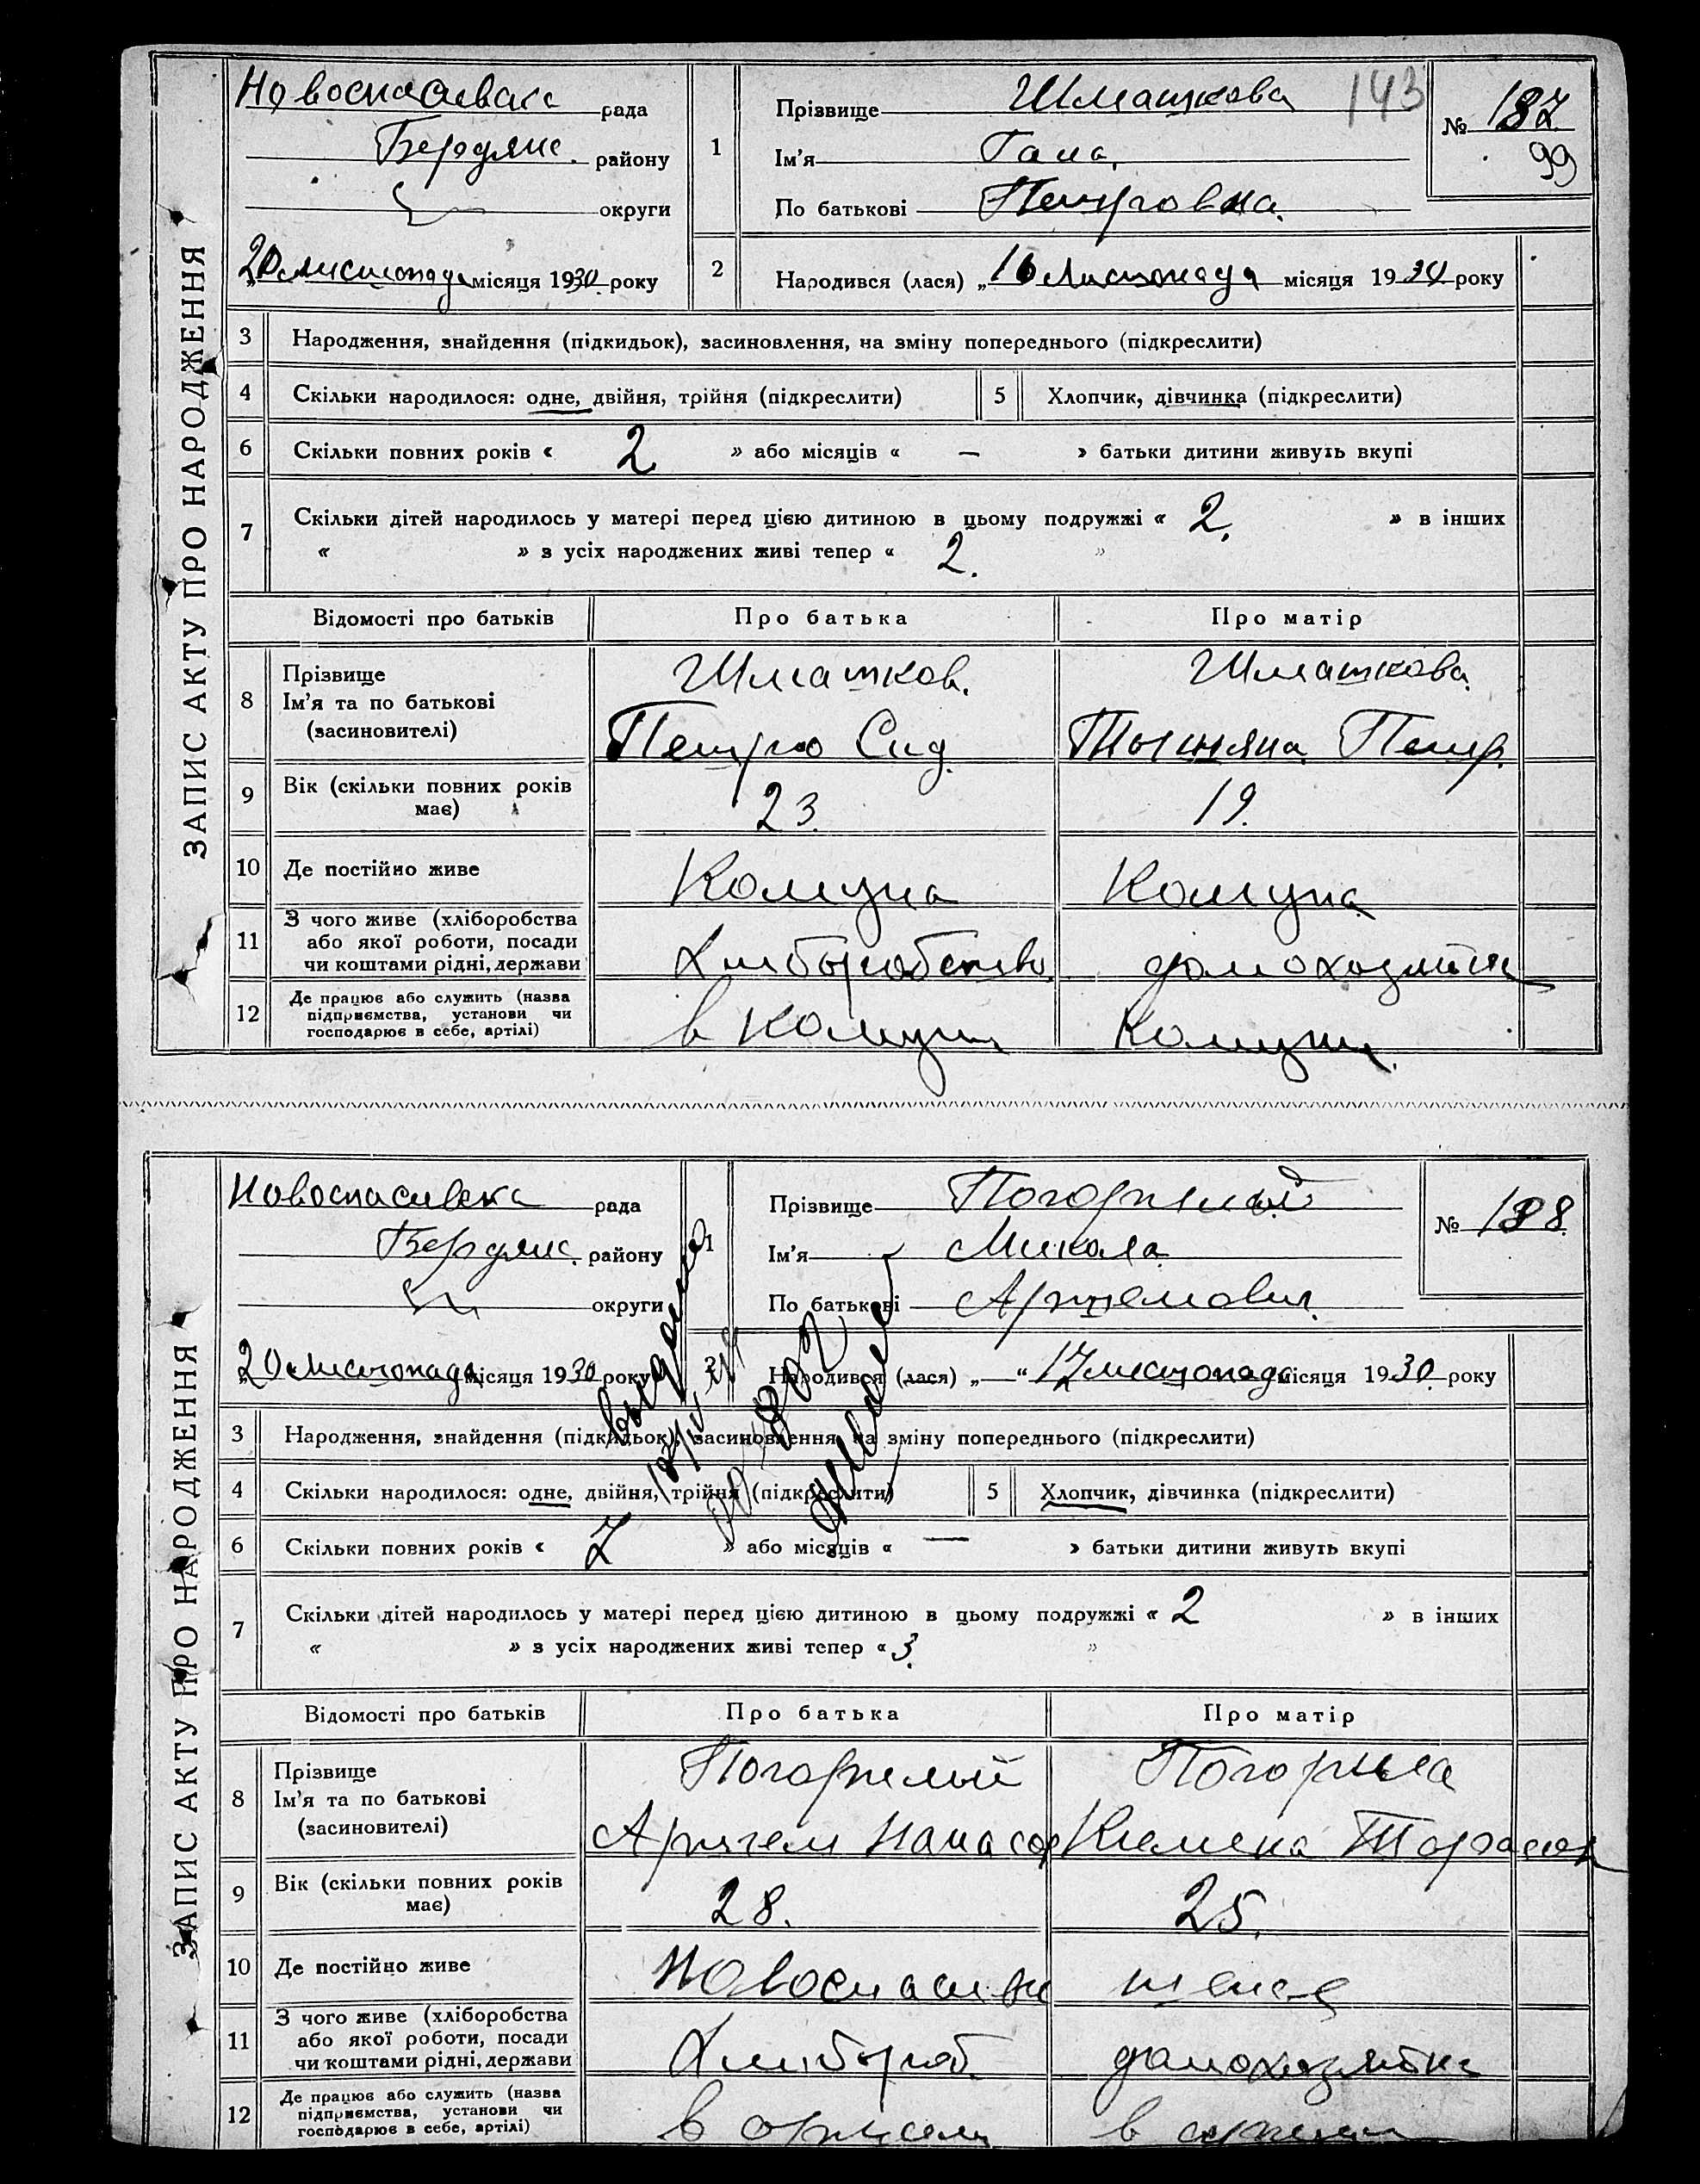 ЗАПИС АКТУ ПРО НАРОДЖЕННЯ
Новоспасивска рада
Бердянс. району
округи
„20 листопада місяця 1930 року
1 Прізвище Шматкова 143
Ім'я Гала
По батькові Петровна.
№ 187
99
2 Народився (лася) „16 листопада місяця 1930 року
3 Народження, знайдення (підкидьок), засиновлення, на зміну попереднього (підкреслити)
4 Скільки народилося: одне, двійня, трійня (підкреслити) 5 Хлопчик, дівчинка (підкреслити)
6 Скільки повних років « 2 » або місяців « — » батьки дитини живуть вкупі
7 Скільки дітей народилось у матері перед цією дитиною в цьому подружжі « 2. » в інших
« » з усіх народжених живі тепер « 2. »
Відомості про батьків Про батька Про матір
8 Прізвище Шматков. Шматкова
Ім'я та по батькові
(засиновителі) Петро Сид. Петр.
9 Вік (скільки повних років має) 23. 19.
10 Де постійно живе Комуна Комуна
11 З чого живе (хліборобства
або якої роботи, посади
чи коштами рідні, держави
домохозяйка
12 Де працює або служить (назва
підприємства, установи чи
господарює в себе, артілі) в комуни Комуни
ЗАПИС АКТУ ПРО НАРОДЖЕННЯ
Новоспасивска рада
Бердянс. району
округи
„20 листопада місяця 1930 року
1 Прізвище Погорилый
Ім'я Микола
По батькові Артемович
№ 188.
2 Народився (лася) „—“ 17 листопада місяця 1930 року
3 Народження, знайдення (підкидьок), засиновлення, на зміну попереднього (підкреслити)
4 Скільки народилося: одне, двійня, трійня (підкреслити) 5 Хлопчик, дівчинка (підкреслити)
6 Скільки повних років « 7 » або місяців « — » батьки дитини живуть вкупі
7 Скільки дітей народилось у матері перед цією дитиною в цьому подружжі « 2 » в інших
« » з усіх народжених живі тепер « 3. »
Відомості про батьків Про батька Про матір
8 Прізвище Погорилый Погорила
Ім'я та по батькові
(засиновителі) Артем Панасов
9 Вік (скільки повних років має) 28. 25.
10 Де постійно живе Новоспасивк
11 З чого живе (хліборобства
або якої роботи, посади
чи коштами рідні, держави
Хлибороб. домохозяйка
12 Де працює або служить (назва
підприємства, установи чи
господарює в себе, артілі) в артели в артели